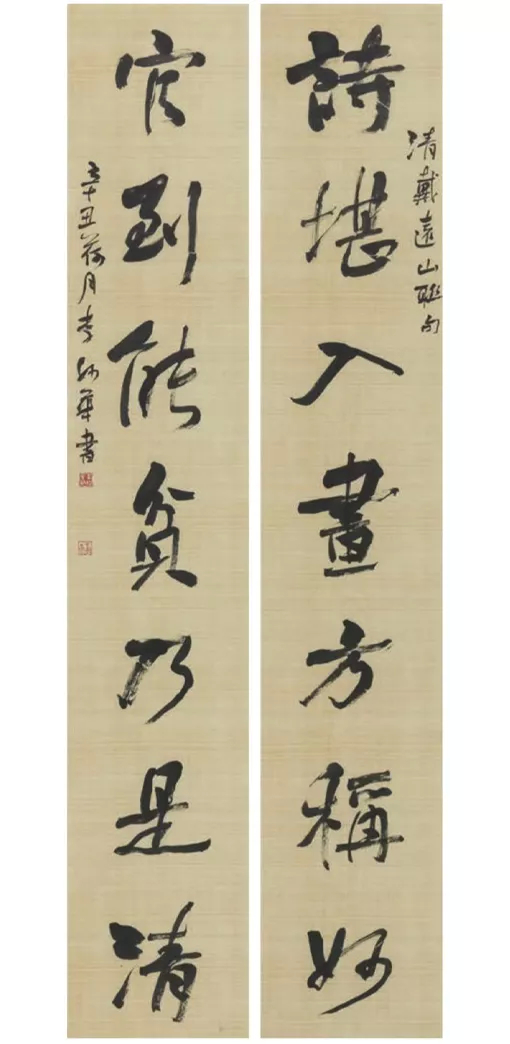 清戴遠山聯句
詩堪入畫方稱妙
官到能貧乃是清
辛丑荷月李華書